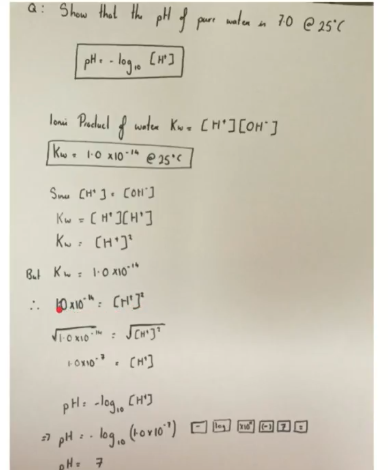 Q: Show that the pH of pure water is 7.0 @ 25°C
pH = - log₁₀ [H⁺]
Ionic Product of water Kw = [H⁺][OH⁻]
Kw = 1.0 x10⁻¹⁴ @ 25°C
Since [H⁺] = [OH⁻]
Kw = [H⁺][H⁺]
Kw = [H⁺]²
But Kw = 1.0 x10⁻¹⁴
∴ 1.0 x10⁻¹⁴ = [H⁺]²
√1.0 x10⁻¹⁴ = √[H⁺]²
1.0 x10⁻⁷ = [H⁺]
pH = -log₁₀ [H⁺]
=> pH = - log₁₀ (1.0 x 10⁻⁷) [-] [log] [x10ˣ] [(-)] [7] [=]
pH = 7